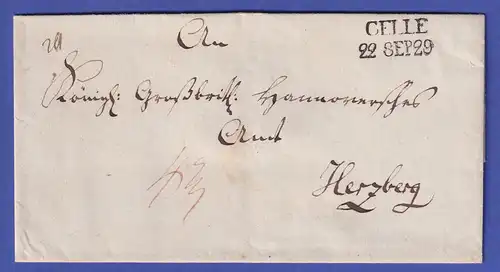 CELLE
22 SEP 29
An
Königl: Großbrit: Hannoversches
Amt
Herzberg